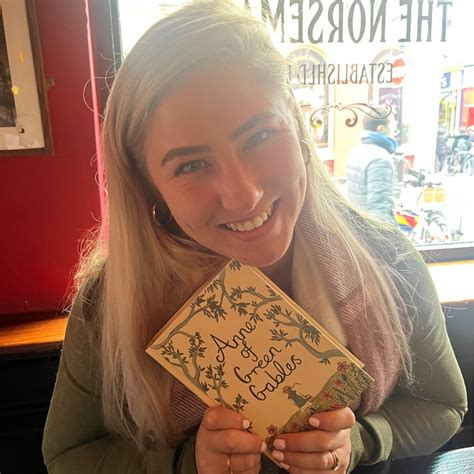 THE NORSEMA
ESTABLISHED
Anne
of
Green
Gables